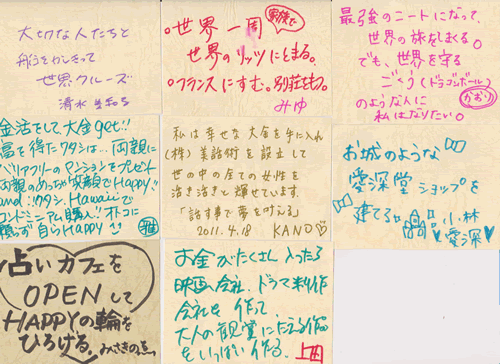 大切な人たちと
船をかしきって
世界クルーズ
清水
世界一周 家族で
世界のリッツにとまる。
フランスにすむ。別荘をもつ。
みゆ
最強のニートになって、
世界の旅をしまくる。
でも、世界を守る
ごくう(ドラゴンボール)
のような人に
私はなりたい。
かおり
金活をして大金get!!
富を得たワタシは…両親に
バリアフリーのマンションをプレゼント
両親のめっちゃ笑顔でHappy!!
and:ワタシ、Hawaiiで
コンドミニアム購入!!
自らHappy
私は幸せな大金を手に入れ
(株)美話術を設立して
世の中の全ての女性を
活き活きと輝かせています。
「話す事で夢を叶える」
2011.4.18 KANO
お城のような
愛深堂ショップを
建てる。
小林
愛深
占いカフェを
OPENして
HAPPYの輪を
ひろげる。
みさきのを。
お金がたくさん入ったら
映画会社、ドラマ制作
会社を作って、
大人の観賞にたえる作品
をいっぱい作る。
上田